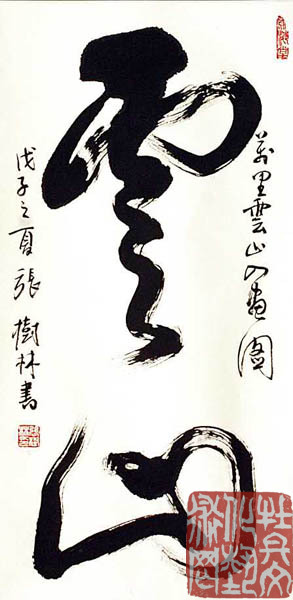 萬里雲山入畫圖
雲山
戊子之夏張樹林書